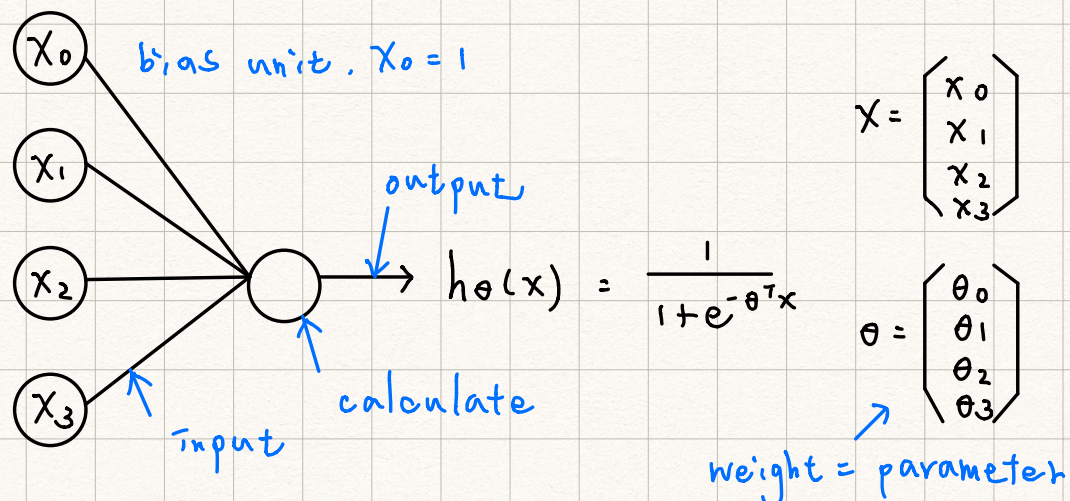 x₀
bias unit. x₀ = 1
x₁
x₂
x₃
output
input
calculate
hθ(x) = 1 / (1 + e^(-θᵀx))
x = (x₀
x₁
x₂
x₃)
θ = (θ₀
θ₁
θ₂
θ₃)
weight = parameter